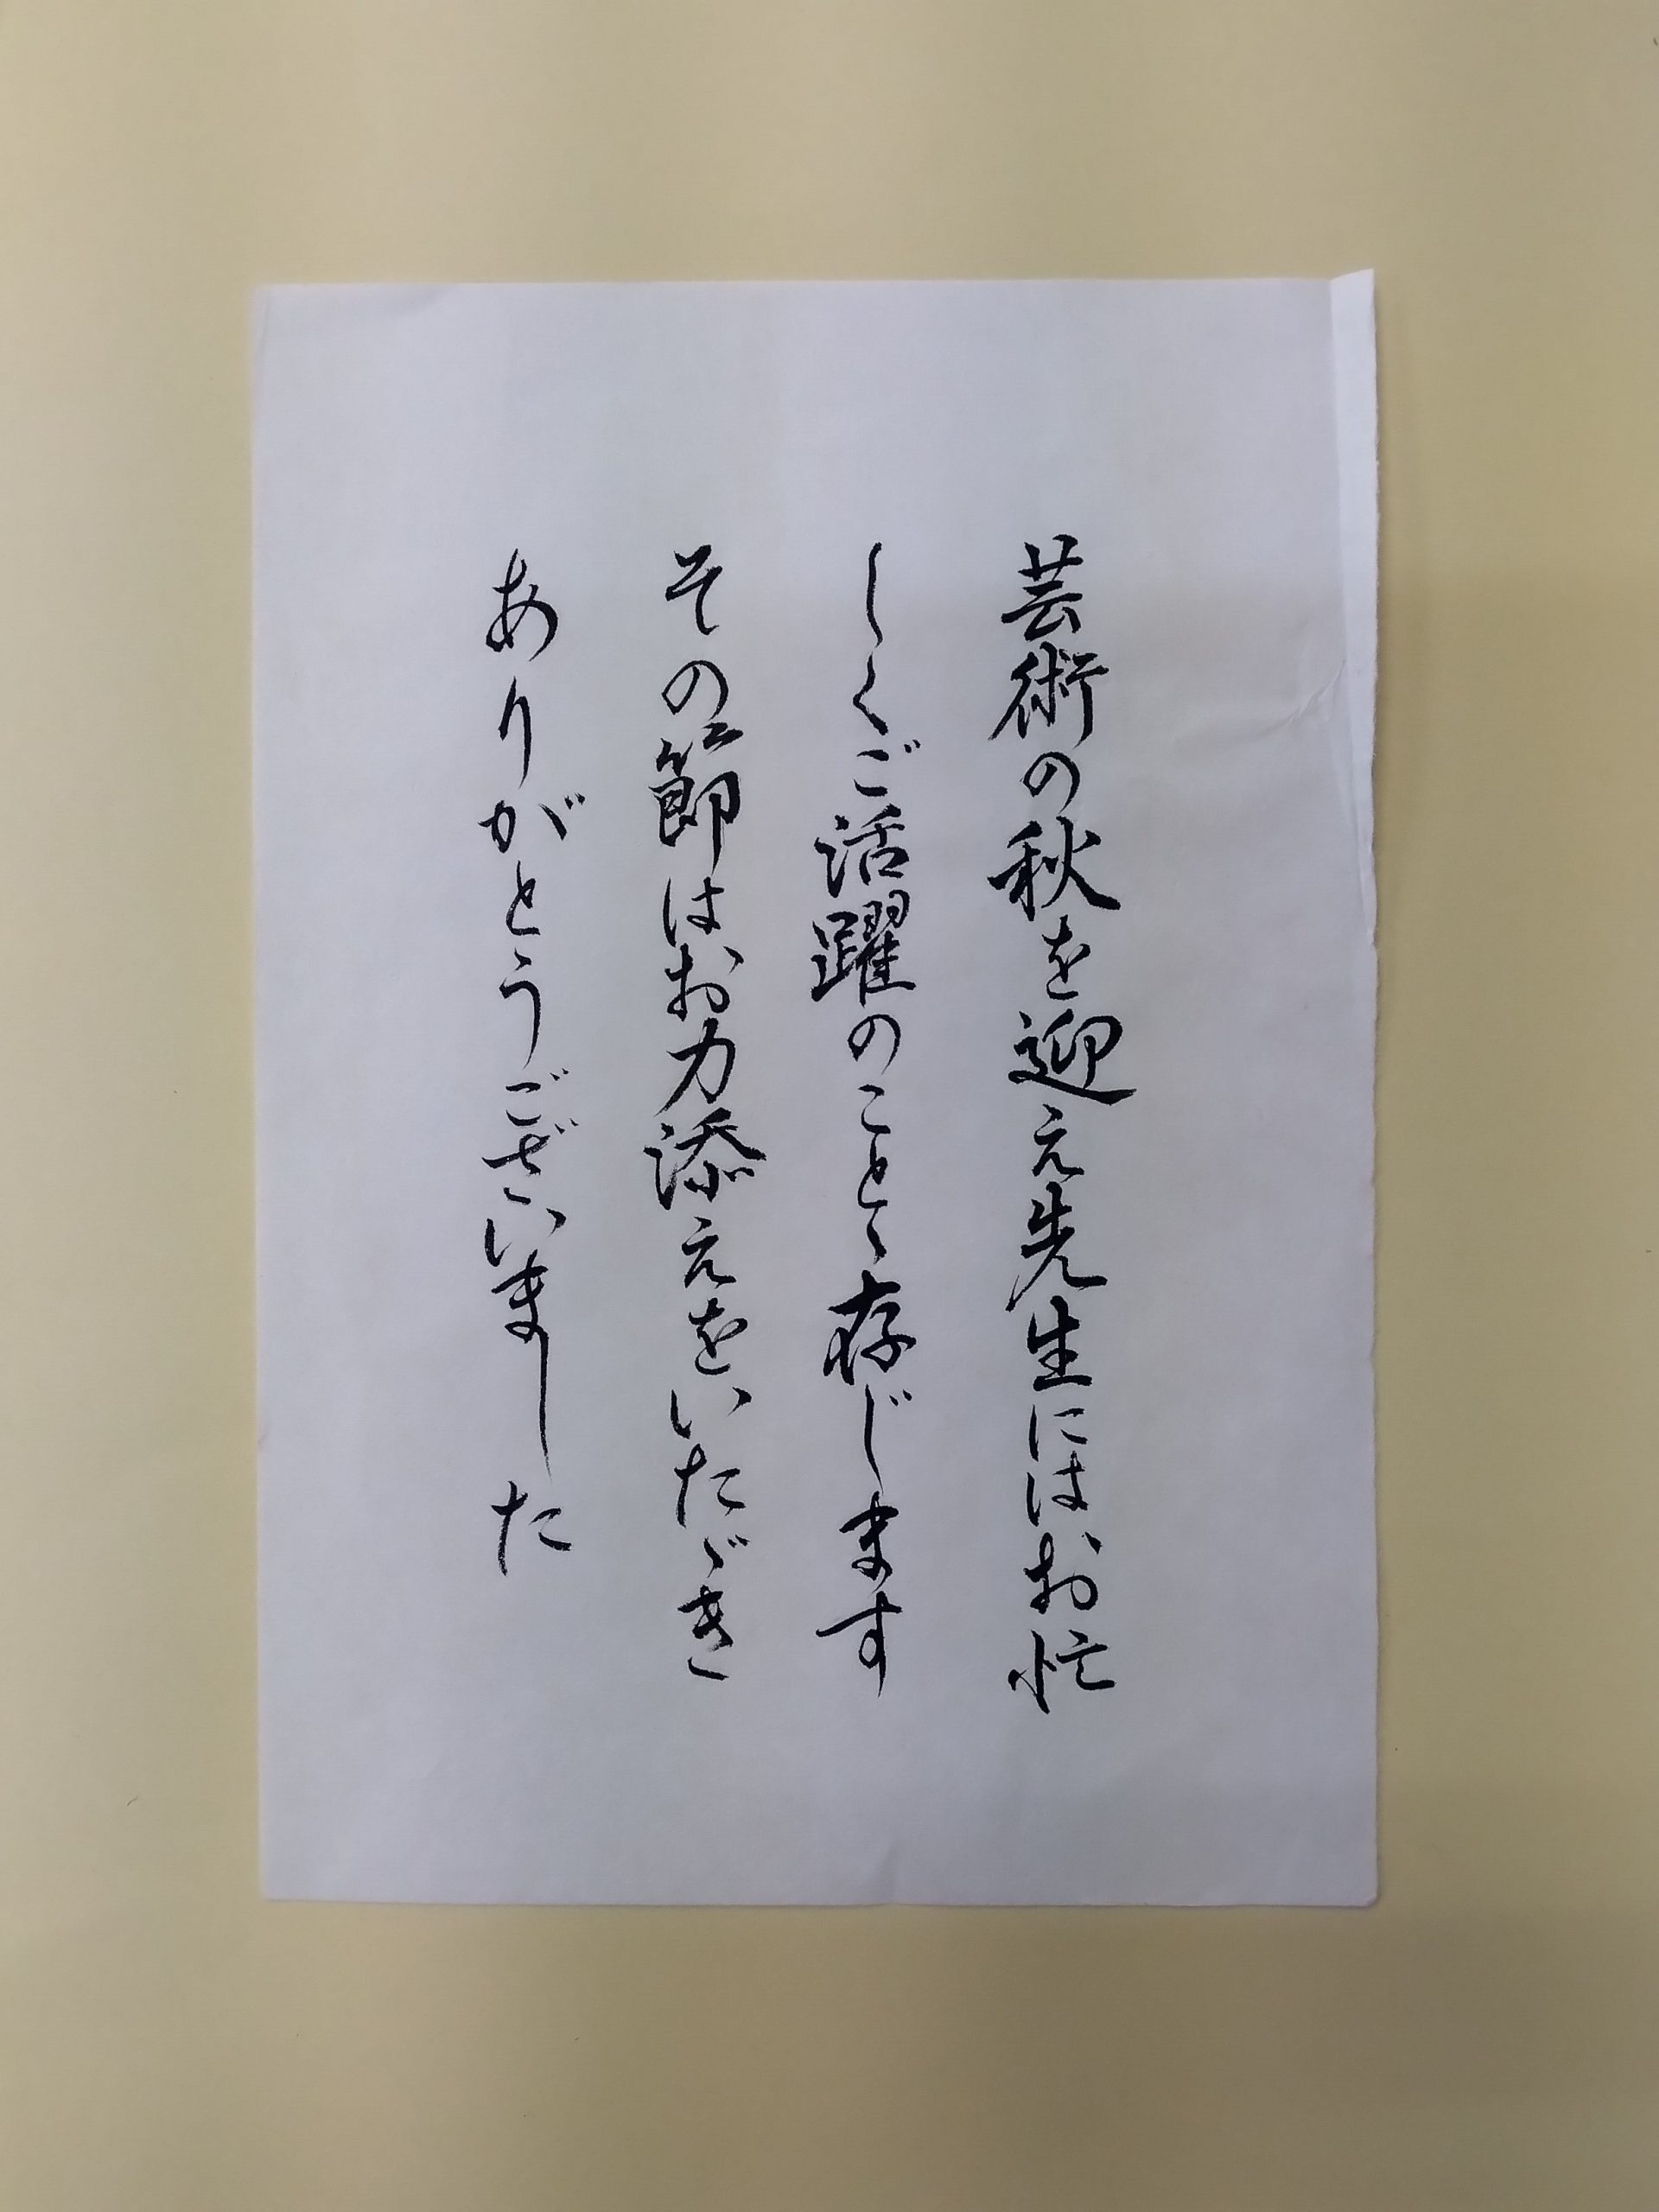 芸術の秋を迎え先生にはお忙
しくご活躍のことゝ存じます
その節はお力添えをいたゞき
ありがとうございました